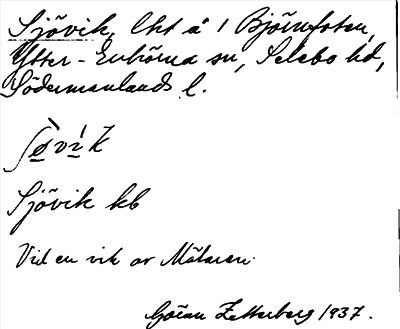 Sjövik, lht å 1 Björnfoten,
Ytter-Enhörna sn, Selebo hd,
Södermanlands l.
ʃø̱̀ví̱k
Sjövik kb
Vid en vik av Mälaren.
Göran Zetterberg 1937.